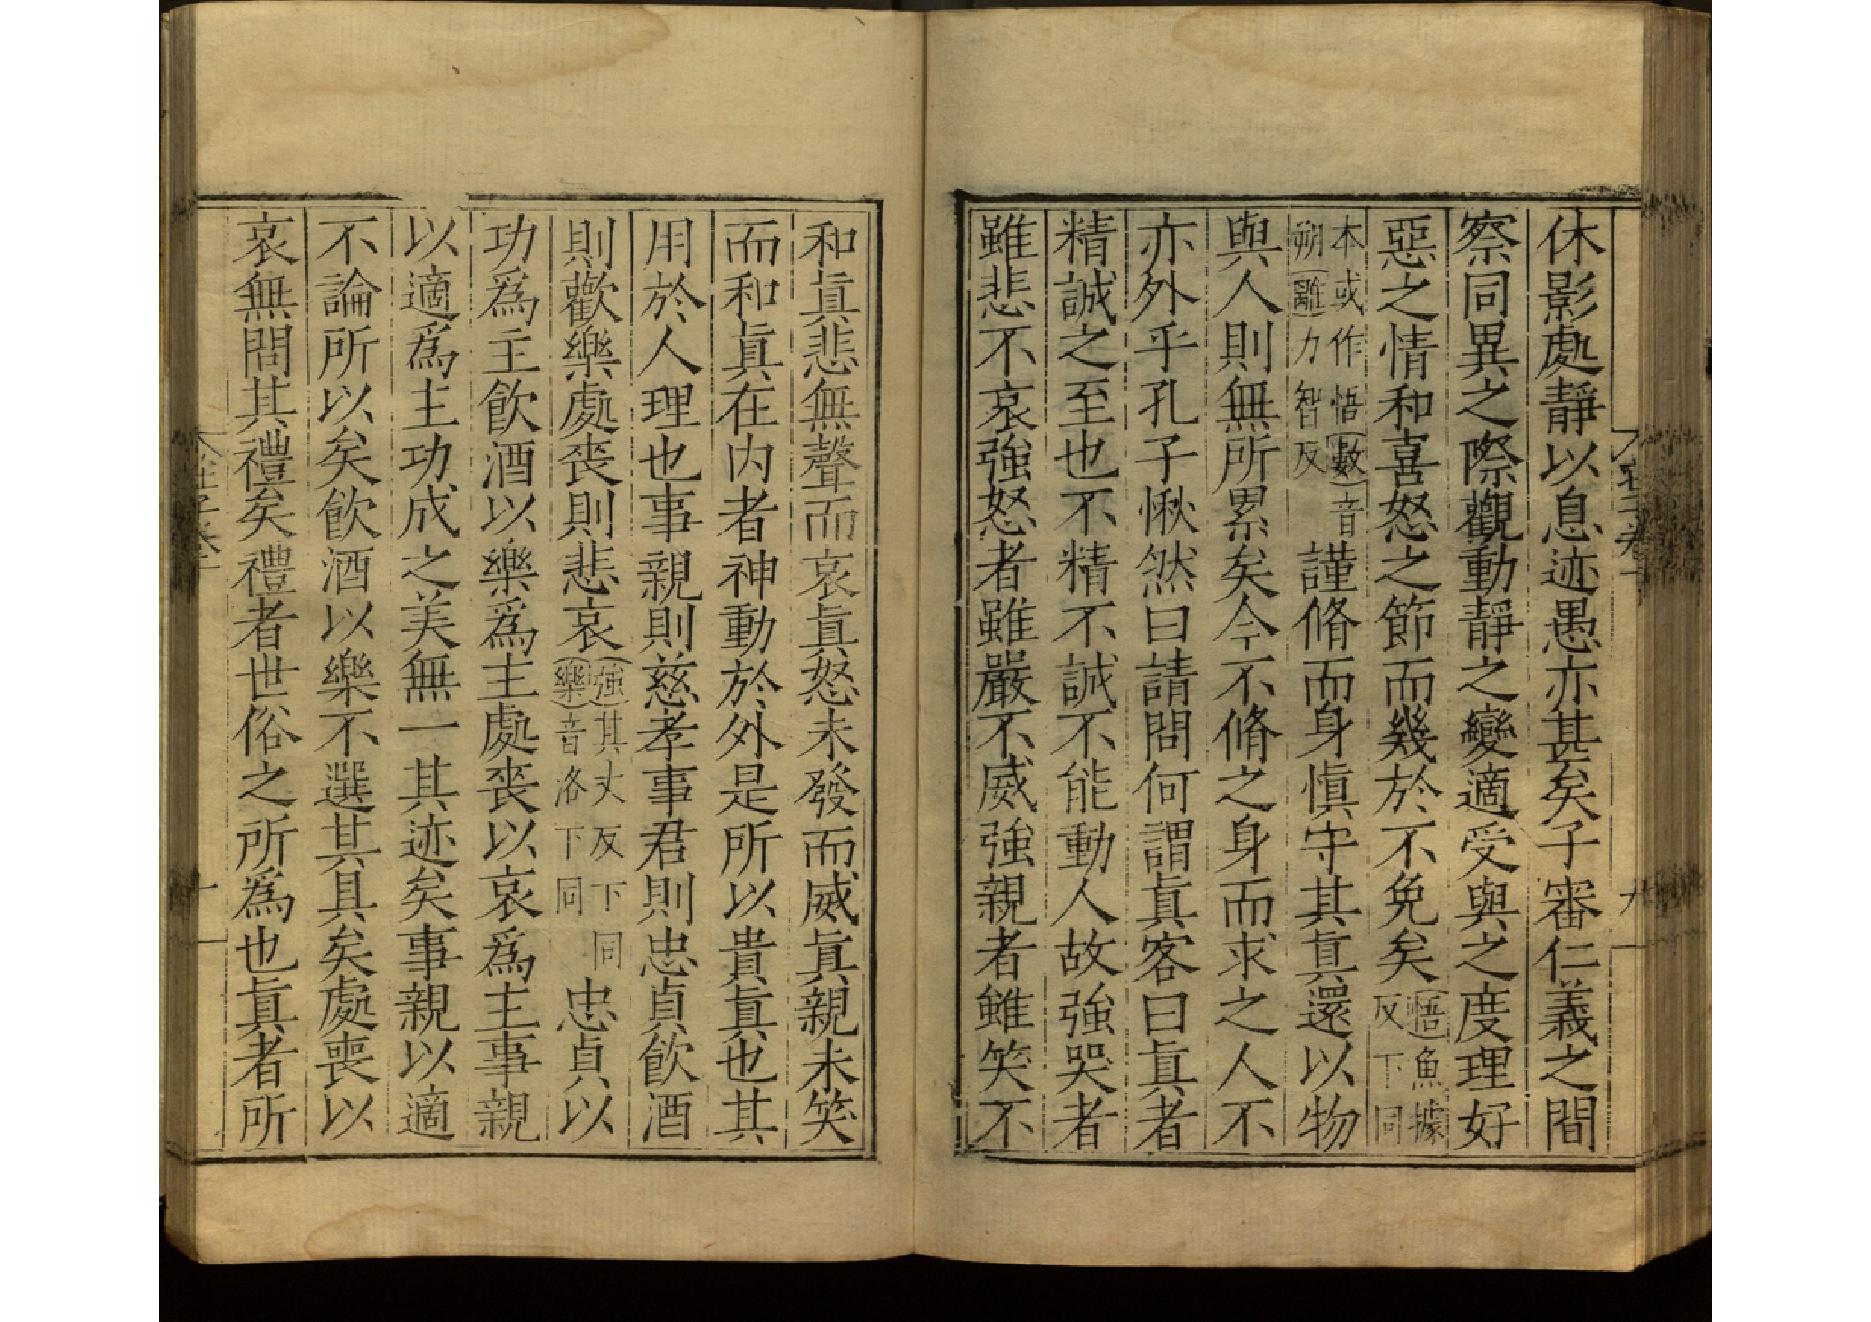 休影處靜以息迹愚亦甚矣子審仁義之間
察同異之際觀動靜之變適受與之度理好
惡之情和喜怒之節而幾於不免矣㈠魚據
反下同
本或作悟數音
朔離力智反
謹脩而身愼守其眞還以物
與人則無所累矣今不脩之身而求之人不
亦外乎孔子愀然曰請問何謂眞客曰眞者
精誠之至也不精不誠不能動人故強哭者
雖悲不哀強怒者雖嚴不威強親者雖笑不
和眞悲無聲而哀眞怒未發而威眞親未笑
而和眞在内者神動於外是所以貴眞也其
用於人理也事親則慈孝事君則忠貞飮酒
則歡樂處喪則悲哀
強其丈反下同
樂音洛下同
忠貞以
功爲主飮酒以樂爲主處喪以哀爲主事親
以適爲主功成之美無一其迹矣事親以適
不論所以矣飮酒以樂不選其具矣處喪以
哀無問其禮矣禮者世俗之所爲也眞者所